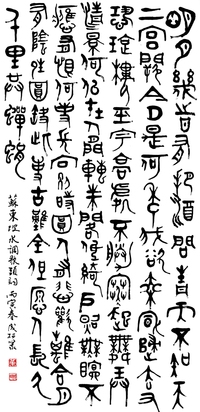 明月幾時有把酒問青天不知天
上宮闕今夕是何年我欲乘風歸去又
恐瓊樓玉宇高處不勝寒起舞弄
清影何似在人間轉朱閣低綺戶照無眠不
應有恨何事長向別時圓人有悲歡離合月
有陰晴圓缺此事古難全但願人長久
千里共嬋娟
蘇東坡水調歌頭詞 丙寅春